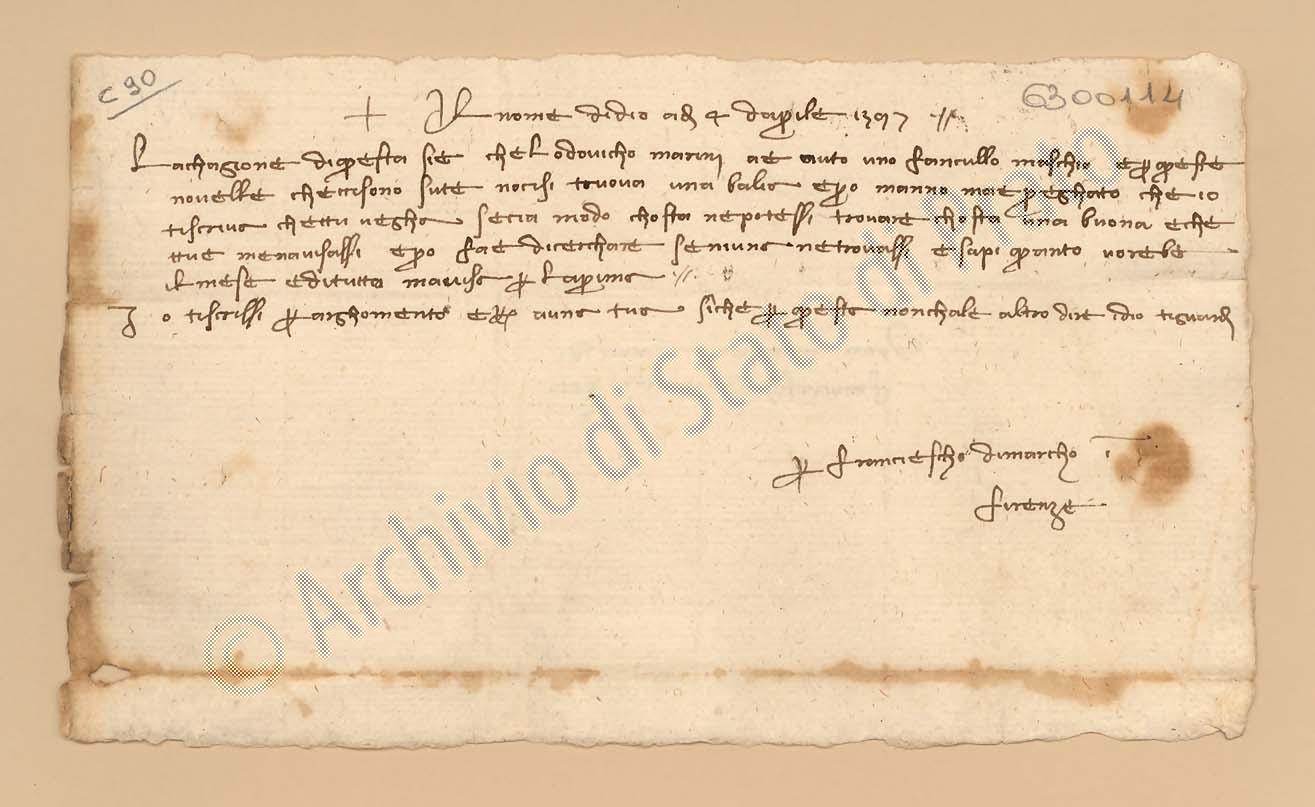 C 90
6300114
+ Al nome di dio adì 4 d'aprile 1397 //
La chagione di questa sie che Lodovicho marini ae auto uno fancullo maschio e per queste
novelle che cci sono sute no si truova una balia e però manno mae preghato che io
ti scriva che ttu vegha se cia modo chostà ne potessi trovare chostà una buona e che
ttue me n'avisassi e però fae di cierchare se niuna ne trovassi e sapi quanto vorebe
il mese e di tutto m'avisa per la prima //
Io ti scrissi per arghomento e per auna tua siche per questa non chale altro dire idio ti guardi
per franciescho di marcho i
firenze
© Archivio di Stato di Prato